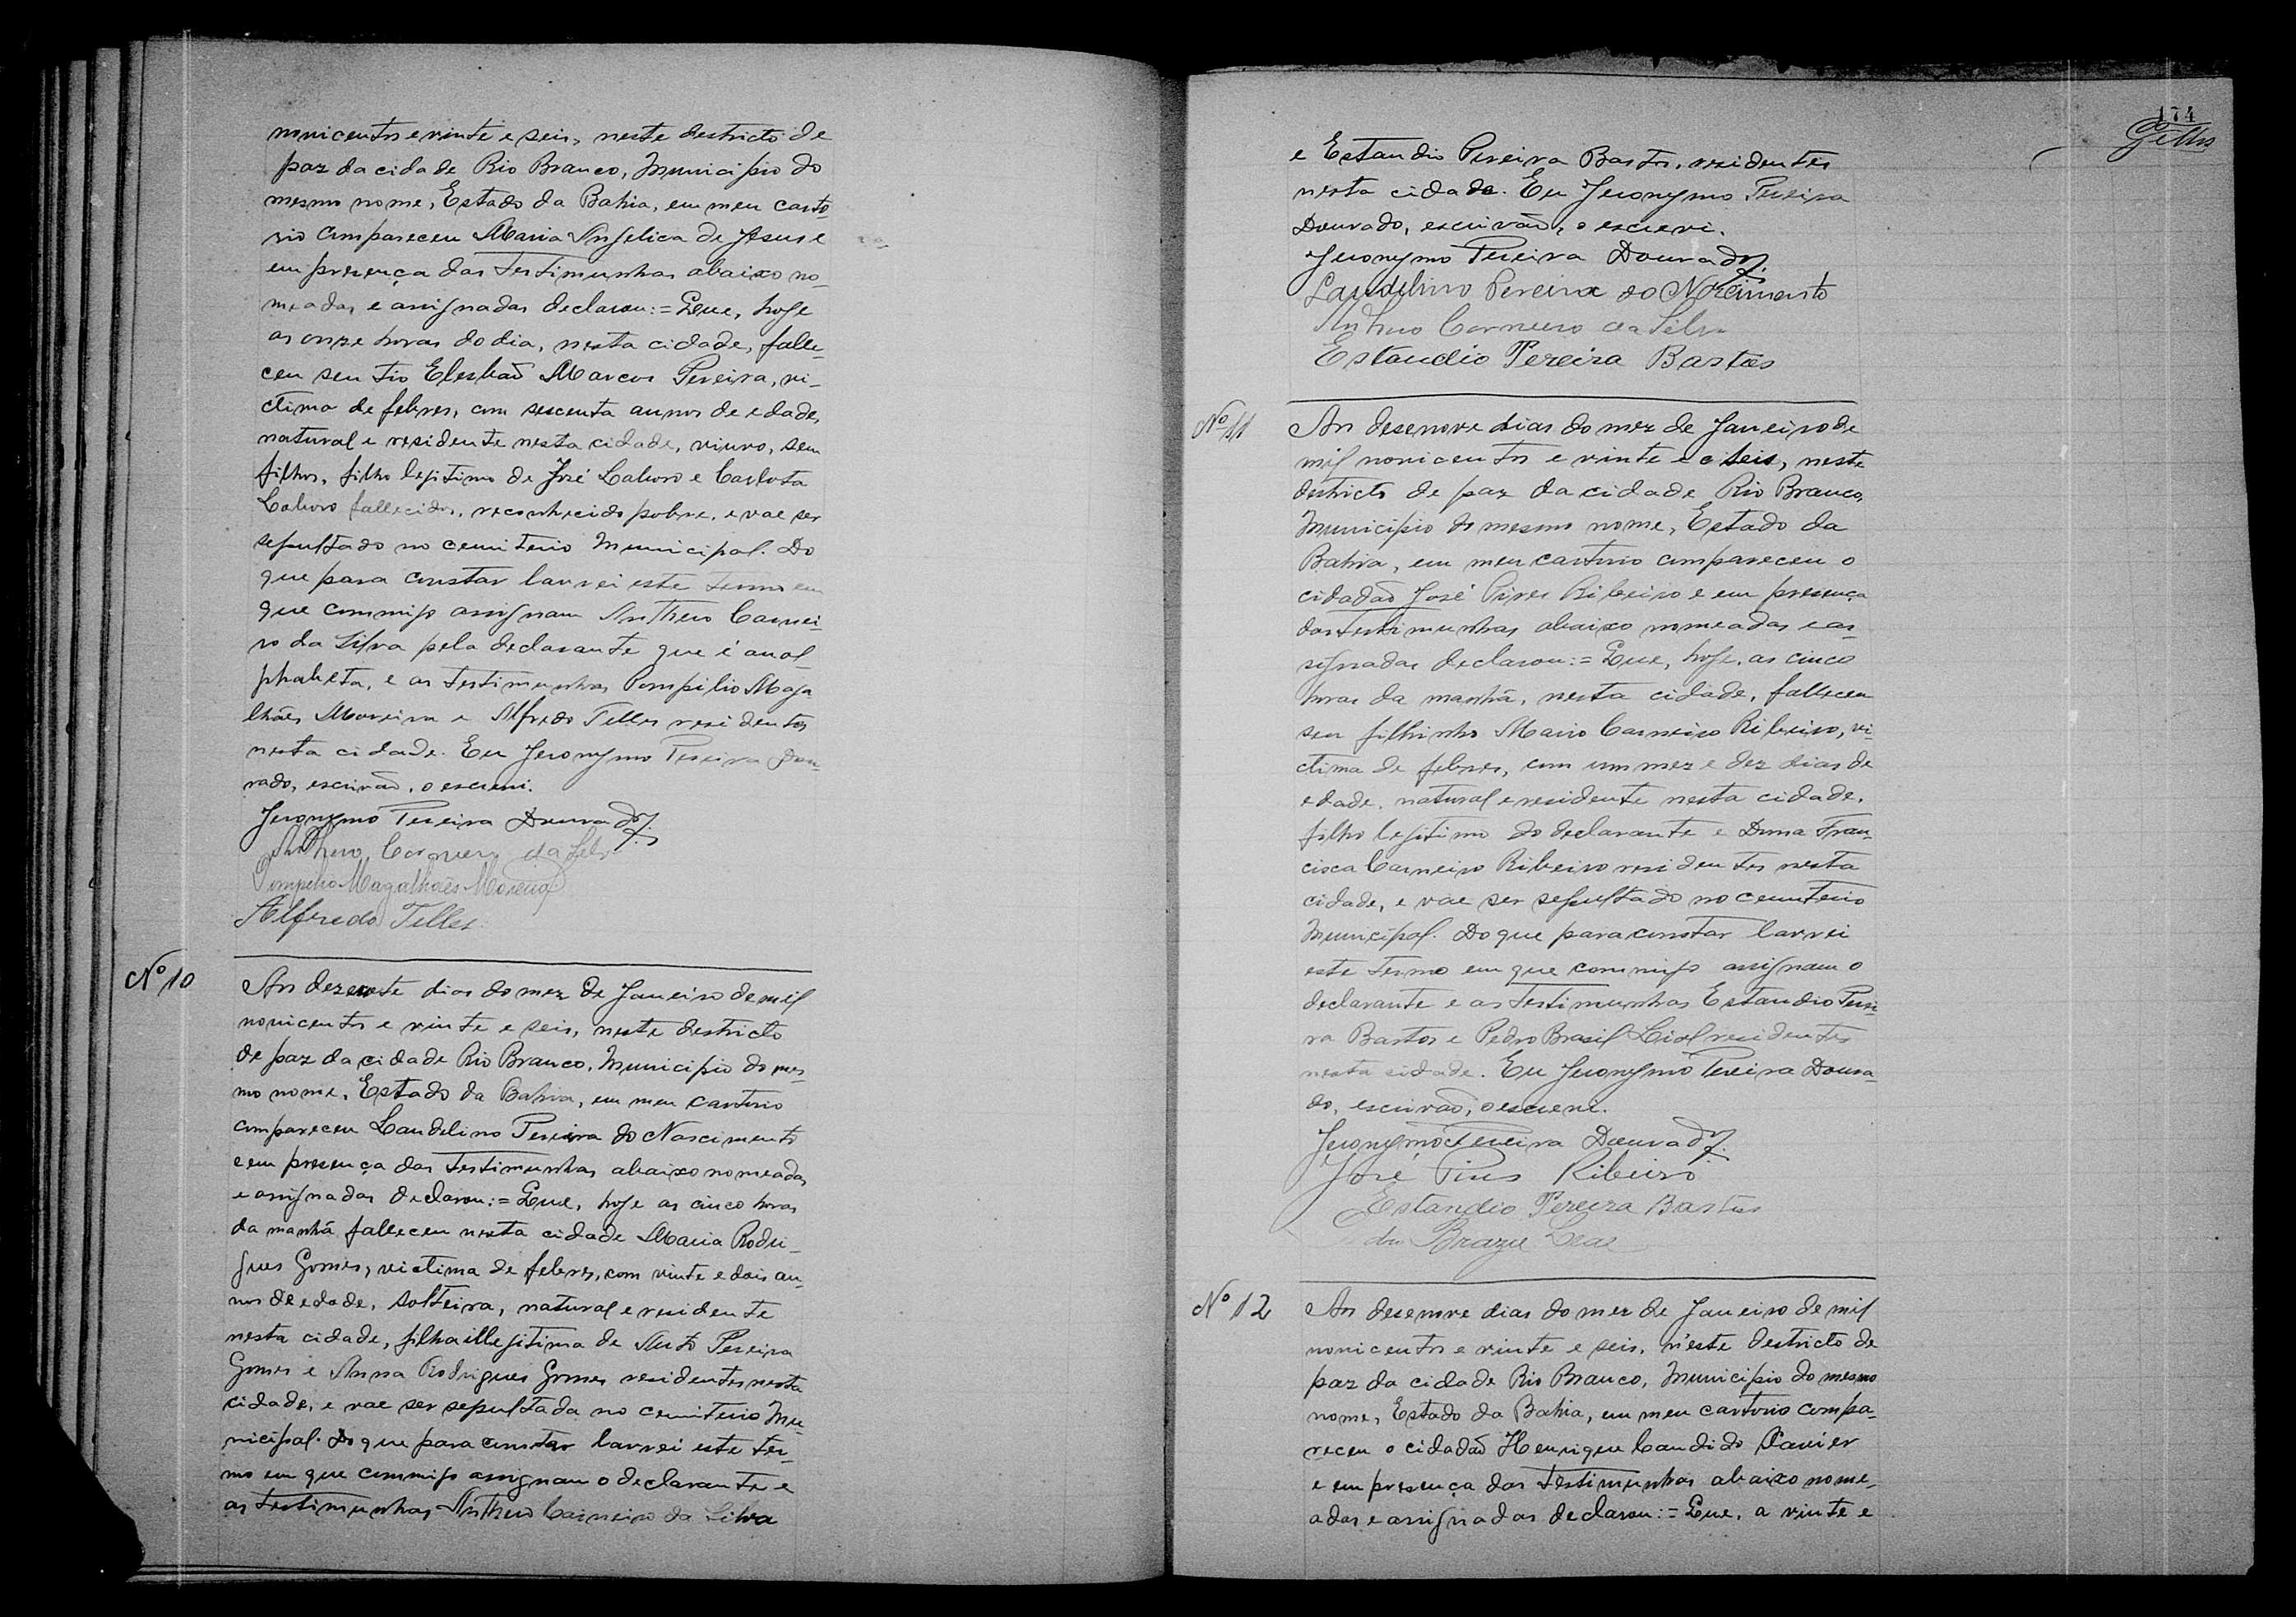 novicentos e vinte e seis, neste destricto de
paz da cidade Rio Branco, Municipio do
mesmo nome, Estado da Bahia, em meu carto-
rio compareceu Maria Angelica de Jesus e
em presença das testimunhas abaixo no-
meadas e assignadas declarou:= Que, hoje
as onze horas do dia, nesta cidade, falle-
ceu seu tio Elesbaõ Marcos Pereira, vi-
ctima de febres, com sescenta annos de edade,
natural e residente nesta cidade, viuvo, sem
filhos, filho legitimo de José e Carlota
fallecidos, reconhecido pobre, e vae ser
sepultado no cemiterio Municipal. Do
que para constar lavrei este termo em
que commigo assignam Anthero Carnei-
ro da Silva pela declarante que é anal-
phabeta, e as testimunhas Pompilio Maga
lhães Moreira e Alfredo Telles residentes
nesta cidade. Eu Jeronymo Pereira Dou-
rado, escrivaõ, o escrevi.
Jeronymo Pereira Dourado
Anthero Carneiro da Silva
Pompilio Magalhães Moreira
Alfredo Telles
Nº 10
Aos dezesete dias do mez de Janeiro de mil
novicentos e vinte e seis, neste destricto
de paz da cidade Rio Branco, Municipio do mes-
mo nome, Estado da Bahia, em meu cartorio
compareceu Laudelino Pereira do Nascimento
e em presença das testimunhas abaixo nomeadas
e assignadas declarou:= Que, hoje as cinco horas
da manhã falleceu nesta cidade Maria Rodri-
gues Gomes, victima de febres, com vinte e dois an-
nos de edade, solteira, natural e residente
nesta cidade, filha illegitima de Pereira
Gomes e Anna Rodrigues Gomes residentes nesta
cidade, e vae ser sepultada no cemiterio Mu-
nicipal. Do que para constar lavrei este ter-
mo em que commigo assignam o declarante e
as testimunhas Anthero Carneiro da Silva
174
e Estandio Pereira Bastos, residentes
nesta cidade. Eu Jeronymo Pereira
Dourado, escrivaõ, o escrevi.
Jeronymo Pereira Dourado
Laudelino Pereira do Nascimento
Anthero Carneiro da Silva
Estandio Pereira Bastos
Nº 11
Aos desenove dias do mez de Janeiro de
mil novicentos e vinte e seis, neste
destricto de paz da cidade Rio Branco,
Municipio do mesmo nome, Estado da
Bahia, em meu cartorio compareceu o
cidadaõ José Pires Ribeiro e em presença
das testimunhas abaixo nomeadas e as-
signadas declarou:= Que, hoje, as cinco
horas da manhã, nesta cidade, falleceu
seu filhinho Mario Carneiro Ribeiro, vi-
ctima de febres, com um mez e dez dias de
edade, natural e residente nesta cidade,
filho legitimo do declarante e Dona Fran-
cisca Carneiro Ribeiro residentes nesta
cidade, e vae ser sepultado no cemiterio
Municipal. Do que para constar lavrei
este termo em que commigo assignam o
declarante e as testimunhas Estandio Perei-
ra Bastos e Pedro Brasil Leal residentes
nesta cidade. Eu Jeronymo Pereira Doura-
do, escrivaõ, o escrevi.
Jeronymo Pereira Dourado
José Pires Ribeiro
Estandio Pereira Bastos
Leal
Nº 12
Aos desenove dias do mez de Janeiro de mil
novicentos e vinte e seis, n'este destricto de
paz da cidade Rio Branco, Municipio do mesmo
nome, Estado da Bahia, em meu cartorio compa-
receu o cidadaõ Henrique Candido Xavier
e em presença das testimunhas abaixo nome-
adas e assignadas declarou:= Que, a vinte e